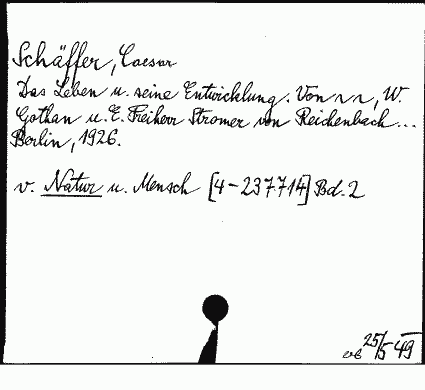 Schäffer, Caesar
Das Leben u. seine Entwicklung. Von ~ ~, W.
Gothan u. E. Freiherr Stromer von Reichenbach...
Berlin, 1926.
v. Natur u. Mensch [4-237714] Bd. 2
25/5 49